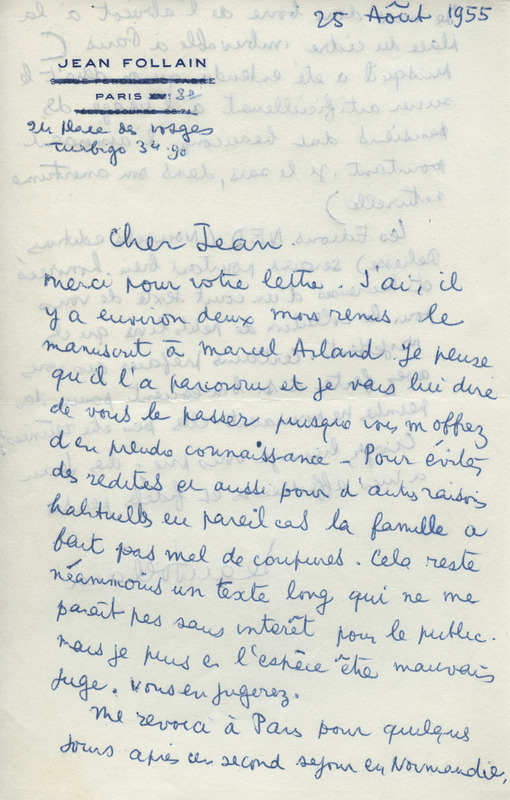 25 Août 1955
JEAN FOLLAIN
PARIS 3e
24 Place des Vosges
Turbigo 34.90
Cher Jean.
Merci pour votre lettre. J'ai, il
y a environ deux mois remis le
manuscrit à Marcel Arland. Je pense
qu'il l'a parcouru et je vais lui dire
de vous le passer puisque vous m'offrez
d'en prendre connaissance - Pour éviter
des redites et aussi pour d'autres raisons
habituelles en pareil cas la famille a
fait pas mal de coupures. Cela reste
néammoins un texte long qui ne me
paraît pas sans intérêt pour le public.
mais je puis en l'espèce être mauvais
juge. Vous en jugerez.
Me revoici à Paris pour quelques
jours après un second séjour en Normandie,